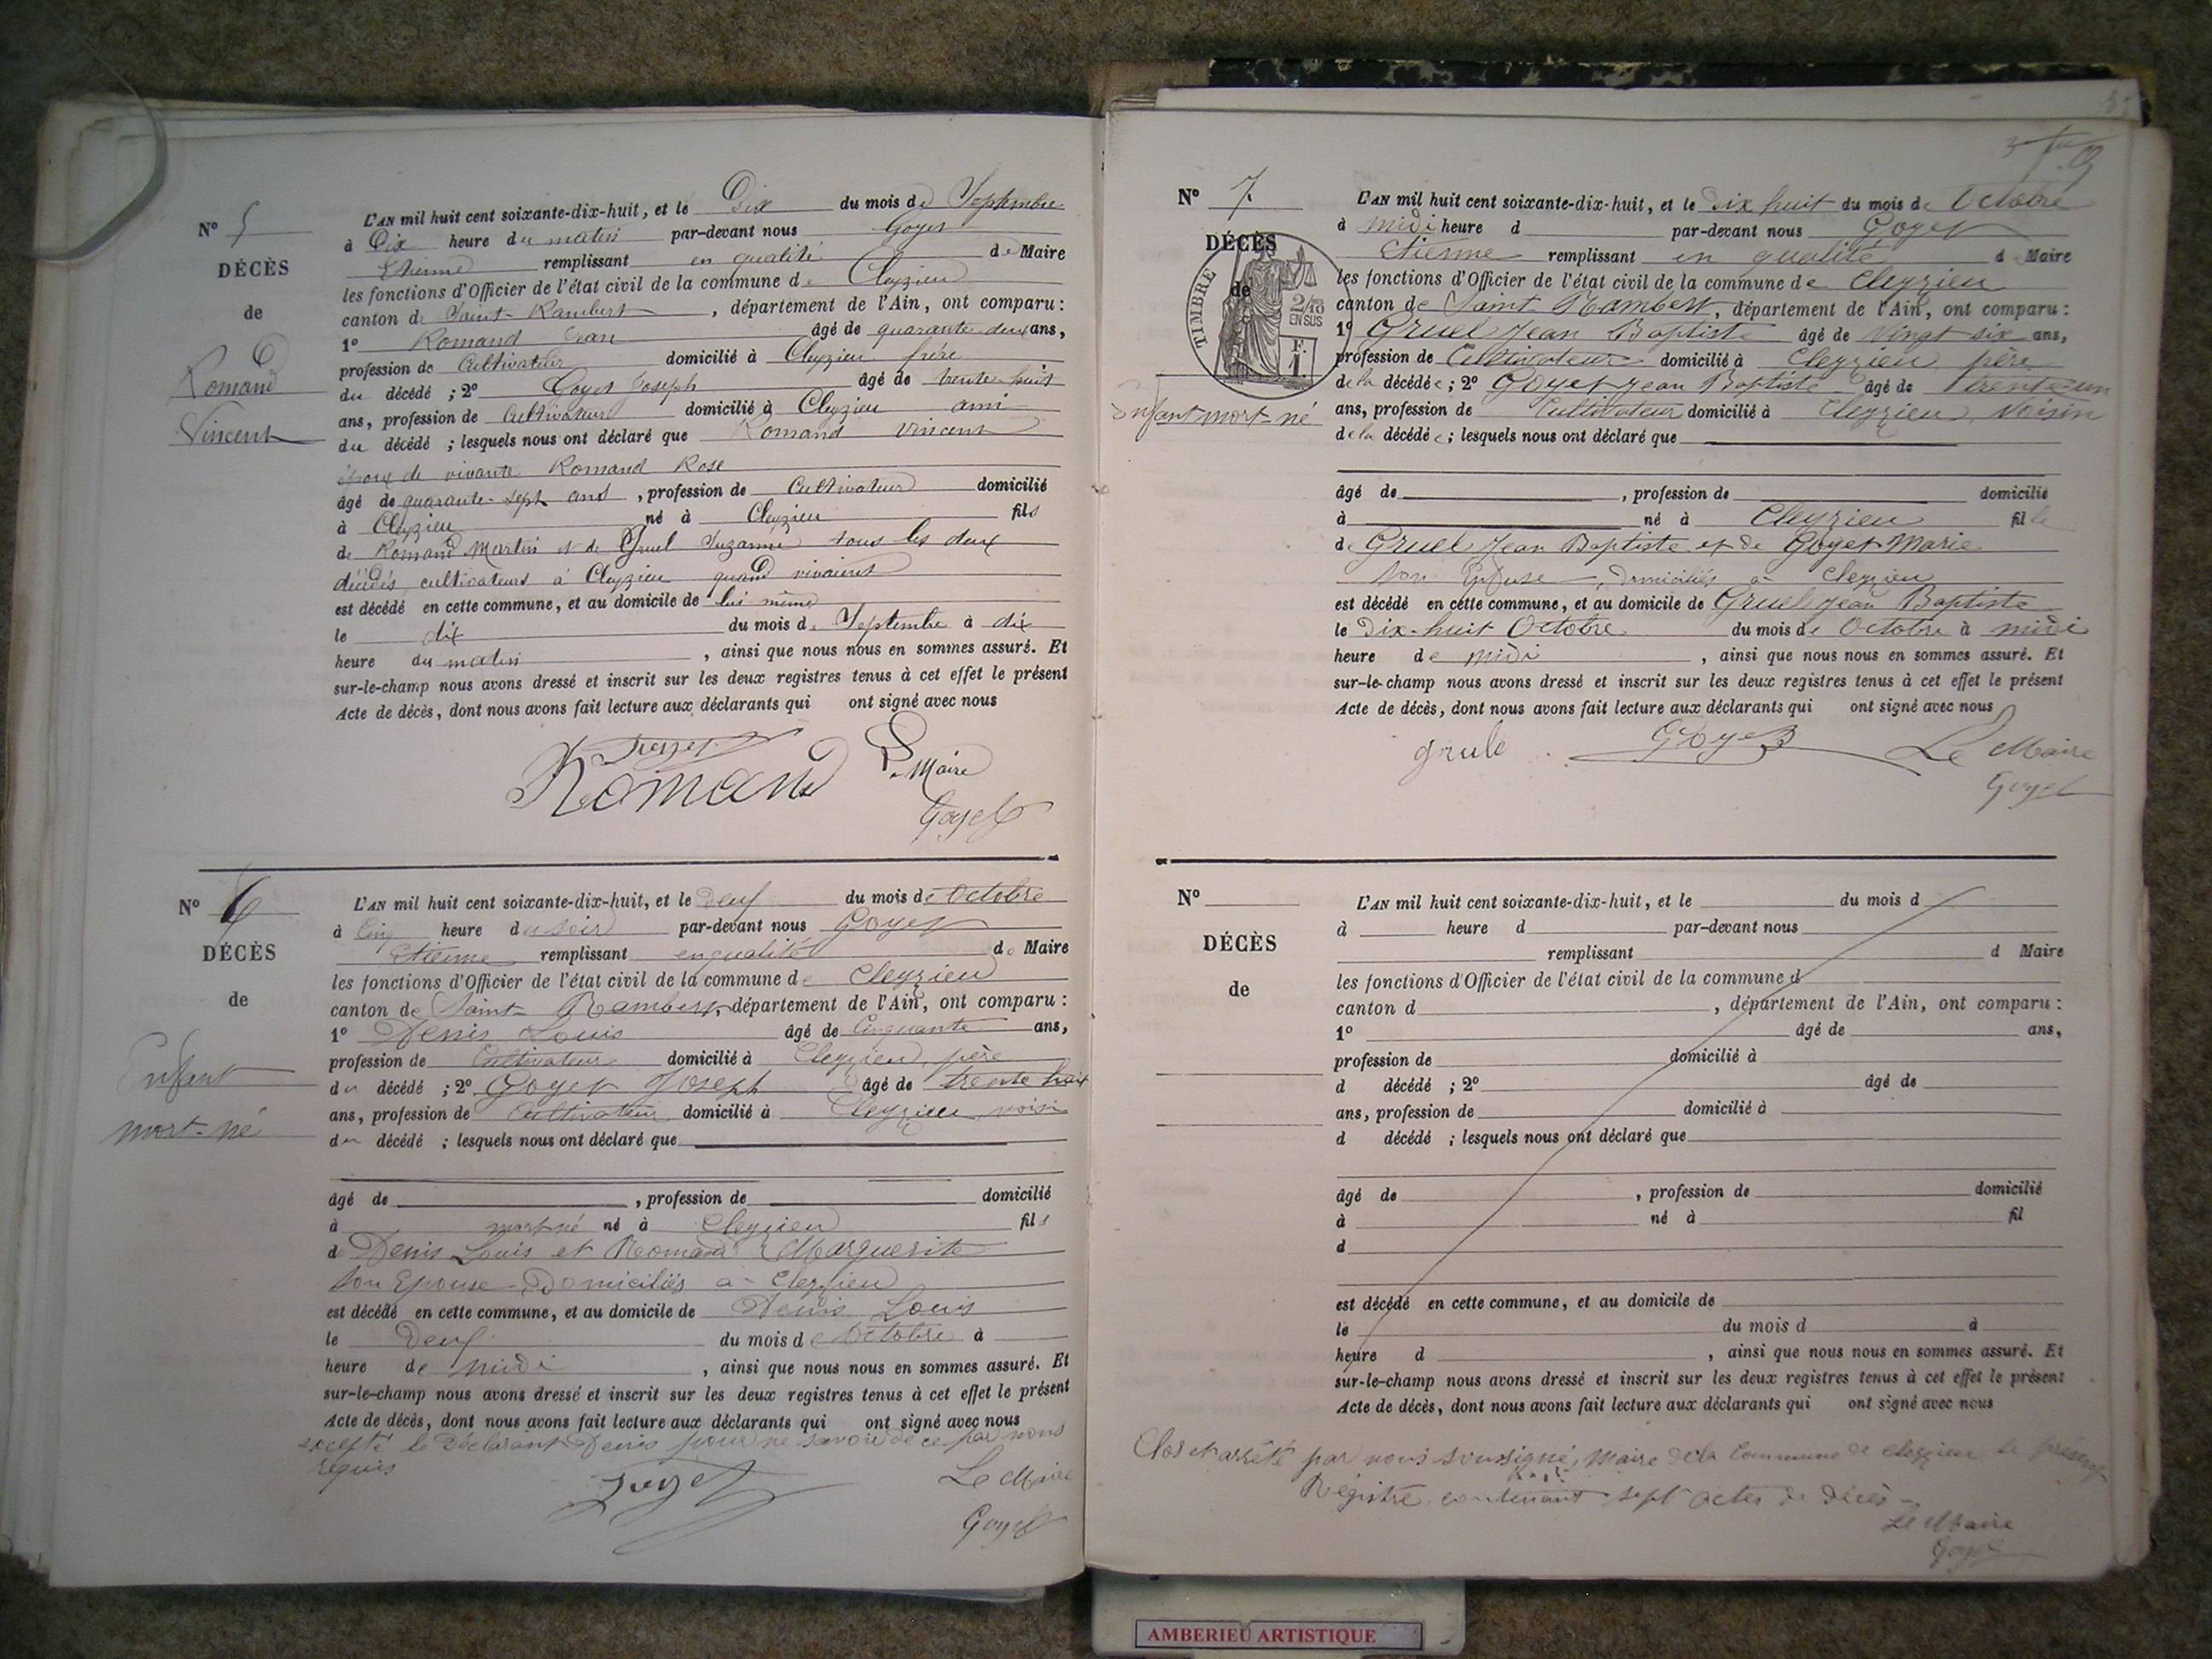 N° 5
DÉCÈS
de
Romand
Vincent
L'AN mil huit cent soixante-dix-huit, et le Dix du mois de Septembre
à Dix heure du matin par-devant nous Goyet
Etienne remplissant en qualité de Maire
les fonctions d'Officier de l'état civil de la commune de Cleyzieu
canton de Saint-Rambert, département de l'Ain, ont comparu :
1° Romand Jean âgé de quarante deux ans,
profession de Cultivateur domicilié à Cleyzieu frère
du décédé ; 2° Goyet Joseph âgé de trente-huit
ans, profession de Cultivateur domicilié à Cleyzieu ami
du décédé ; lesquels nous ont déclaré que Romand Vincent
époux de vivante Romand Rose
âgé de quarante-sept ans, profession de Cultivateur domicilié
à Cleyzieu né à Cleyzieu fils
de Romand Martin et de Gruel Suzanne tous les deux
décédés, cultivateurs à Cleyzieu quand vivaient
est décédé en cette commune, et au domicile de lui même
le dix du mois de Septembre à dix
heure du matin, ainsi que nous nous en sommes assuré. Et
sur-le-champ nous avons dressé et inscrit sur les deux registres tenus à cet effet le présent
Acte de décès, dont nous avons fait lecture aux déclarants qui ont signé avec nous
Romand Le Maire
Goyet
N° 6
DÉCÈS
de
Enfant
mort-né
L'AN mil huit cent soixante-dix-huit, et le Deux du mois de Octobre
à Cinq heure du soir par-devant nous Goyet
Etienne remplissant en qualité de Maire
les fonctions d'Officier de l'état civil de la commune de Cleyzieu
canton de Saint-Rambert, département de l'Ain, ont comparu :
1° Denis Louis âgé de Cinquante ans,
profession de Cultivateur domicilié à Cleyzieu, père
du décédé ; 2° Goyet Joseph âgé de trente huit
ans, profession de Cultivateur domicilié à Cleyzieu voisin
du décédé ; lesquels nous ont déclaré que
âgé de , profession de domicilié
à mort né né à Cleyzieu fils
de Denis Louis et Romand Marguerite
son Epouse, Domiciliés à Cleyzieu
est décédé en cette commune, et au domicile de Denis Louis
le Deux du mois de Octobre à
heure de midi, ainsi que nous nous en sommes assuré. Et
sur-le-champ nous avons dressé et inscrit sur les deux registres tenus à cet effet le présent
Acte de décès, dont nous avons fait lecture aux déclarants qui ont signé avec nous
excepté le Déclarant Denis pour ne savoir de ce par nous
requis
Le Maire
Goyet
N° 7
DÉCÈS
de
TIMBRE
2/10
EN SUS
F.
1.
Enfant mort-né
L'AN mil huit cent soixante-dix-huit, et le Dix huit du mois de Octobre
à midi heure d par-devant nous Goyet
Etienne remplissant en qualité d Maire
les fonctions d'Officier de l'état civil de la commune de Cleyzieu
canton de Saint-Rambert, département de l'Ain, ont comparu :
1° Gruel Jean Baptiste âgé de Vingt six ans,
profession de Cultivateur domicilié à Cleyzieu père
de la décédée ; 2° Goyet Jean Baptiste âgé de trente-un
ans, profession de Cultivateur domicilié à Cleyzieu, Voisin
de la décédée ; lesquels nous ont déclaré que
âgé de , profession de domicilié
à né à Cleyzieu fille
de Gruel Jean Baptiste et de Goyet Marie
son Epouse, domiciliés à Cleyzieu
est décédé en cette commune, et au domicile de Gruel Jean Baptiste
le Dix-huit Octobre du mois de Octobre à midi
heure de midi, ainsi que nous nous en sommes assuré. Et
sur-le-champ nous avons dressé et inscrit sur les deux registres tenus à cet effet le présent
Acte de décès, dont nous avons fait lecture aux déclarants qui ont signé avec nous
grule Goyet Le Maire
Goyet
N°
DÉCÈS
de
L'AN mil huit cent soixante-dix-huit, et le du mois d
à heure d par-devant nous
remplissant d Maire
les fonctions d'Officier de l'état civil de la commune d
canton d , département de l'Ain, ont comparu :
1° âgé de ans,
profession de domicilié à
d décédé ; 2° âgé de
ans, profession de domicilié à
d décédé ; lesquels nous ont déclaré que
âgé de , profession de domicilié
à né à fil
d
est décédé en cette commune, et au domicile de
le du mois d à
heure d , ainsi que nous nous en sommes assuré. Et
sur-le-champ nous avons dressé et inscrit sur les deux registres tenus à cet effet le présent
Acte de décès, dont nous avons fait lecture aux déclarants qui ont signé avec nous
Clos et arrêté par nous soussigné, Maire de la Commune de Cleyzieu le présent
Régistre contenant sept actes de décès
Le Maire
Goyet
AMBERIEU ARTISTIQUE